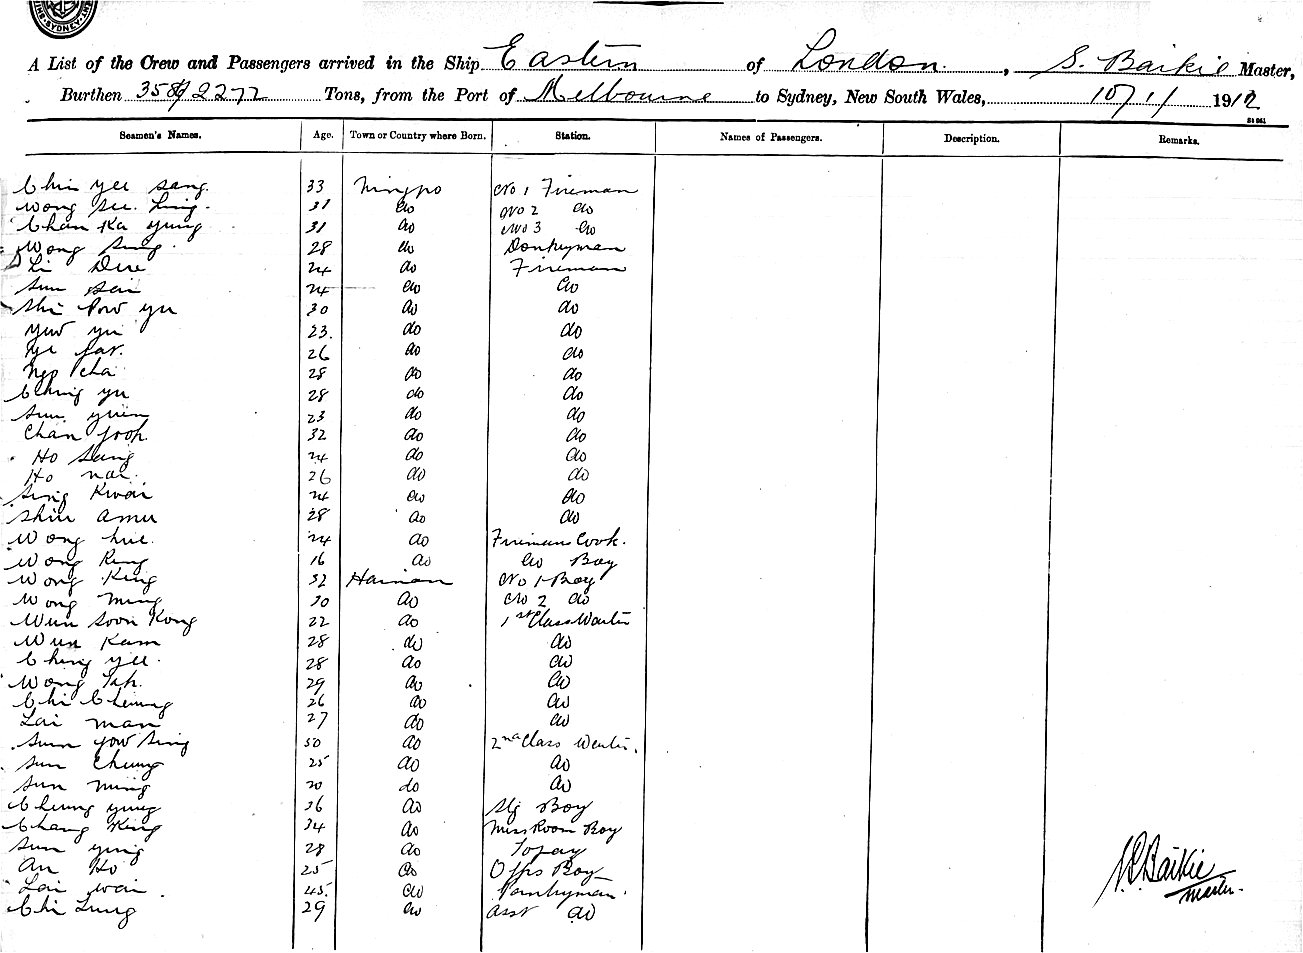 SYDNEY
A List of the Crew and Passengers arrived in the Ship Eastern of London, S. Baikie Master,
Burthen 3587/2272 Tons, from the Port of Melbourne to Sydney, New South Wales, 10/1/1912
Seamen's Names. Age. Town or Country where Born. Station. Names of Passengers. Description. Remarks.
Chin Yee Sang 33 Ningpo No 1 Fireman
Wong See Ling 31 do No 2 do
Chan Ka Yung 31 do No 3 do
Wong Sing 28 do Donkeyman
Li Dere 24 do Fireman
Sun Sai 24 do do
Shi Pow Yu 30 do do
Yuw Yu 23 do do
Ye Far 26 do do
Cha 28 do do
Ching Yu 28 do do
Sun Yuen 23 do do
Chan Fook 32 do do
Ho Sang 24 do do
Ho Nai 26 do do
Sing Kwai 24 do do
Shiu Amu 28 do do
Wong hue 24 do Firemans Cook.
Wong Keng 16 do do Boy
Wong King 32 Hainan No 1 Boy
Wong Ming 30 do No 2 do
Wun Soon Kong 22 do 1st Class Waiter
Wun Kam 28 do do
Ching Yee 28 do do
Wong Tak 29 do do
Chi Cheung 26 do do
Lai Man 27 do do
Sum Yow Sing 50 do 2nd Class Waiter.
Sun Chung 25 do do
Sun Ming 20 do do
Cheung Yung 36 do Boy
Chang King 34 do Mess Room Boy
Sun Ying 28 do Topay
An Ho 25 do Offrs Boy
Lai Wai 45 do Pantryman
Chi Lung 29 do Asst do
Baikie
Master.